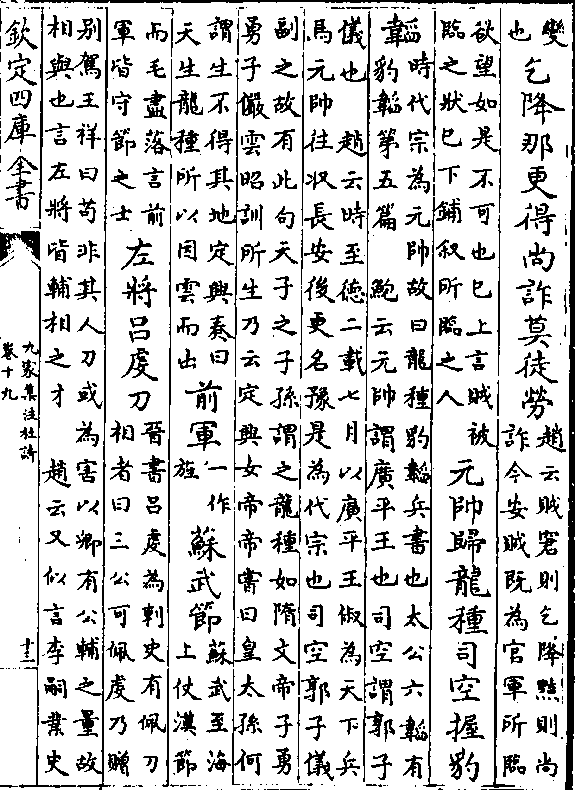 變
也
乞降那更得尚詐莫徒勞
趙云賊窘則乞降黠則尚
詐今安賊既為官軍所臨
欲望如是不可也已上言賊被
臨之狀已下鋪叙所臨之人
元帥歸龍種司空握豹
韜
時代宗為元帥故曰龍種豹韜兵書也太公六韜有
豹韜第五篇 鮑云元帥謂廣平王也司空謂郭子
儀也 趙云時至徳二載七月以廣平王俶為天下兵
馬元帥往收長安後更名豫是為代宗也司空郭子儀
副之故有此句天子之子孫謂之龍種如隋文帝子勇
勇子儼雲昭訓所生乃云定興女帝帝嘗曰皇太孫何
謂生不得其地定興奏曰
天生龍種所以因雲而出
前軍
一作
旌
蘇武節
蘇武至海
上仗漢節
而毛盡落言前
軍皆守節之士
左將吕虔刀
晉書吕虔為刺史有佩刀
相者曰三公可佩虔乃贈
别駕王祥曰茍非其人刀或為害以卿有公輔之量故
相與也言左將皆輔相之才 趙云又似言李嗣業史
欽定四庫全書
九家集注杜詩
卷十九
十二